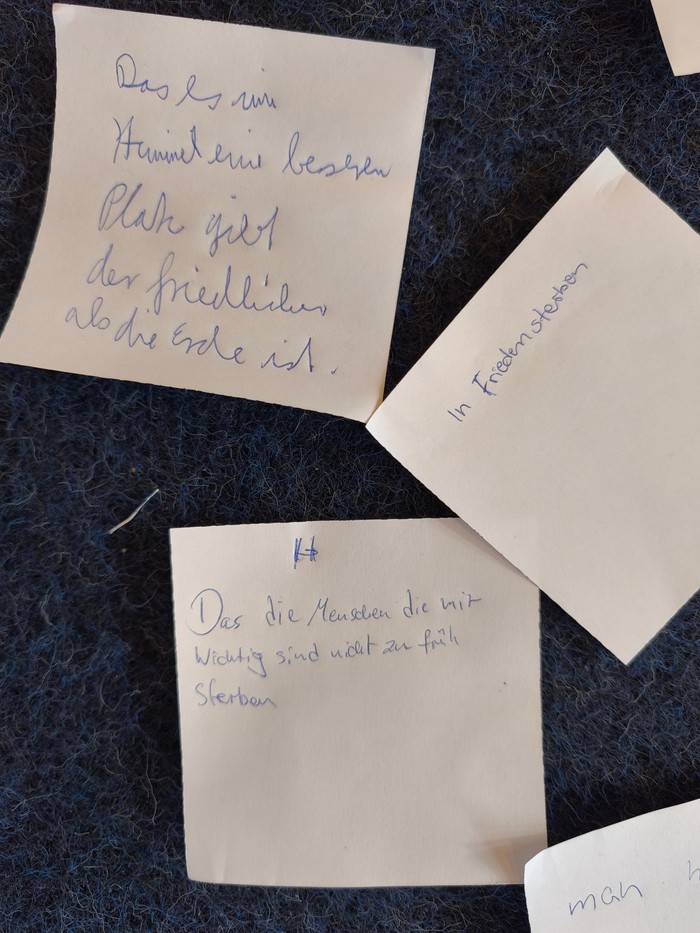 Das es im
Himmel eine besseren
Platz gibt
der friedlicher
als die Erde ist.
In Frieden sterben
Das die Menschen die mir
Wichtig sind nicht zu früh
Sterben
man